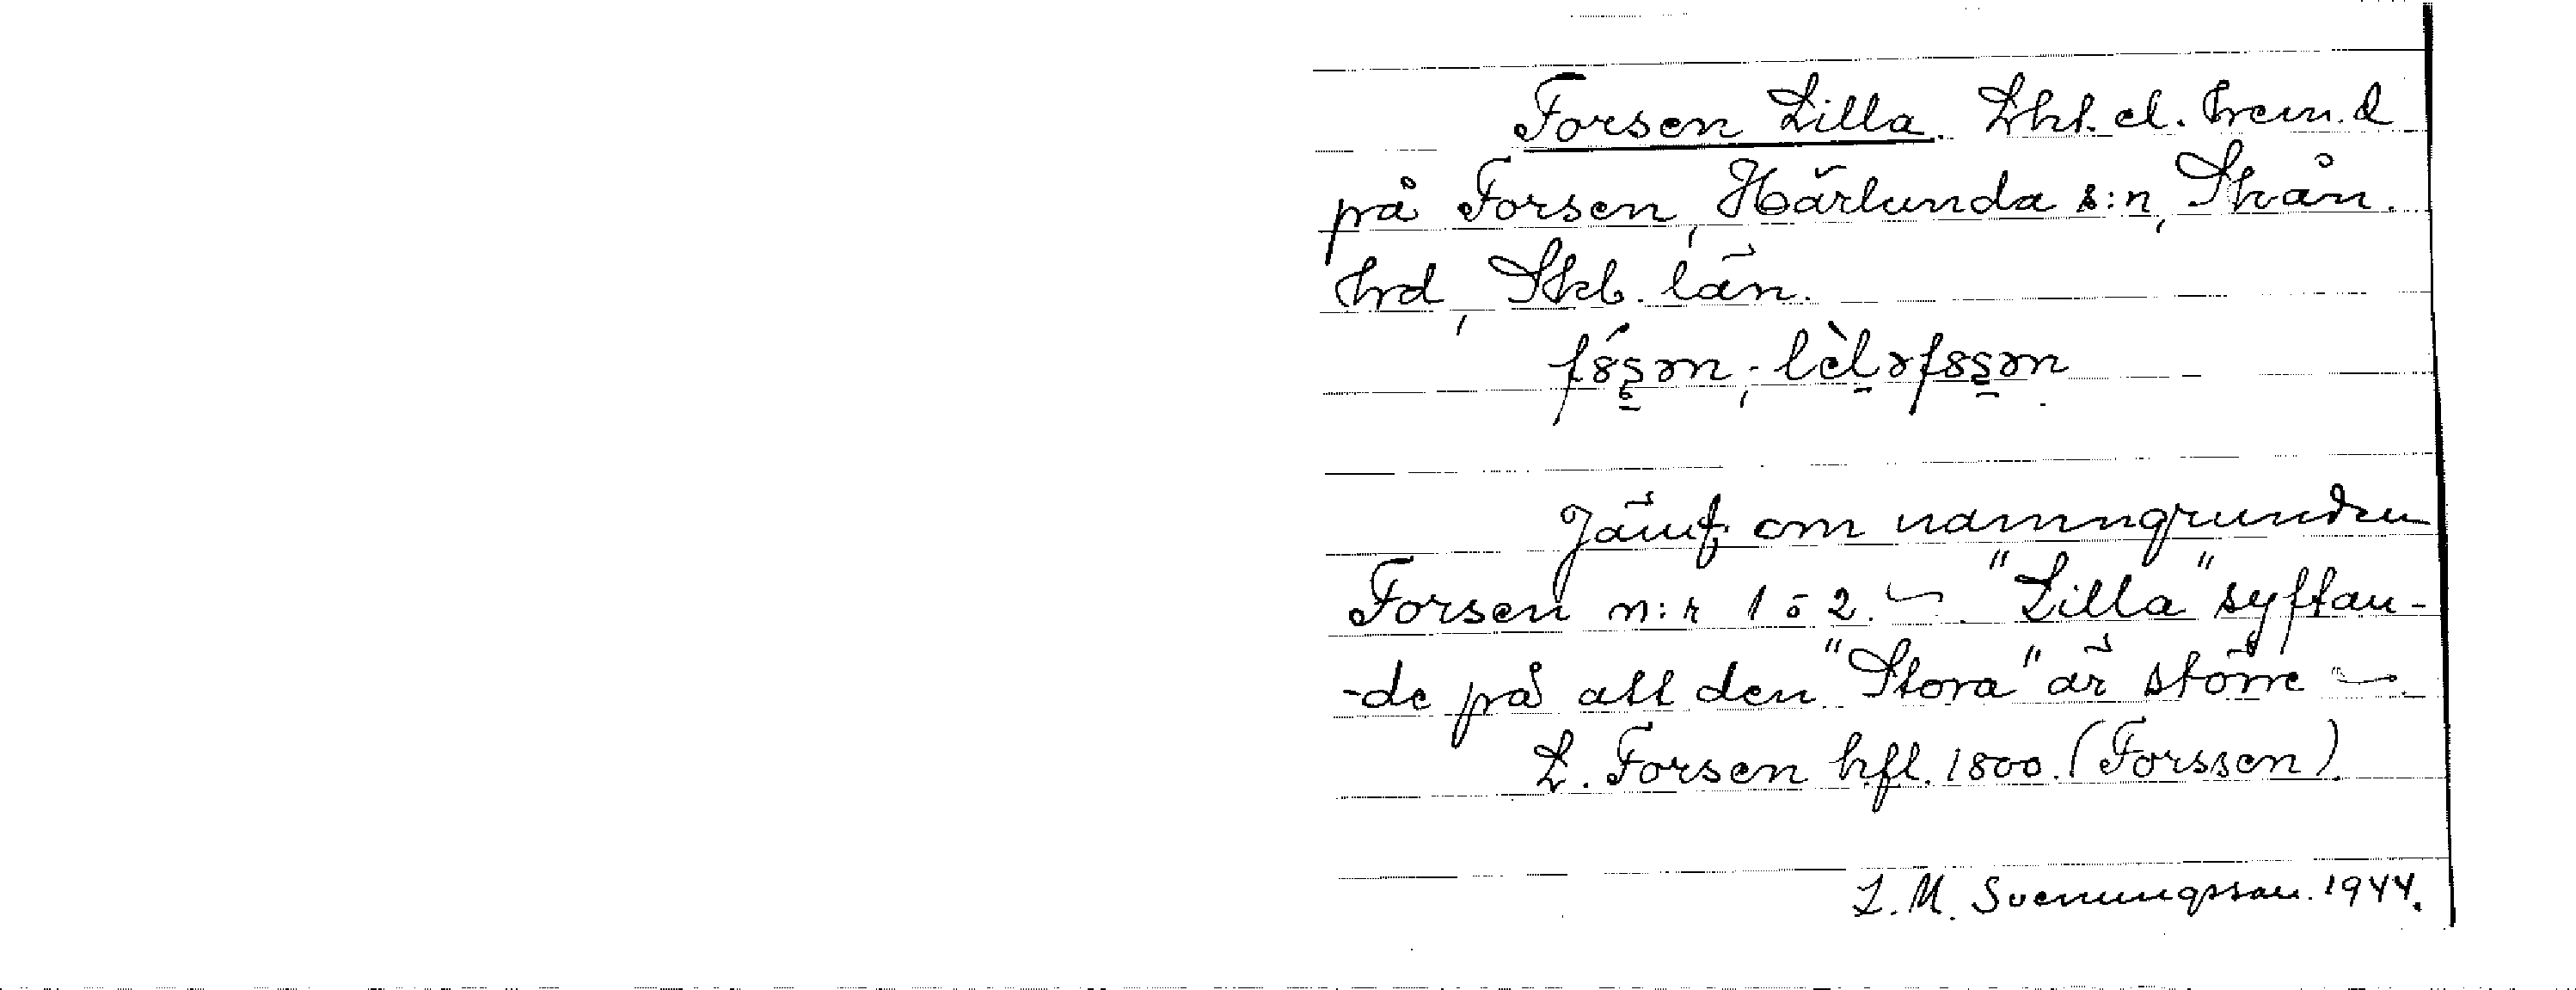 Forsen Lilla. Lht. el. hem.d
på Forsen, Härlunda s:n, Skån.
hrd, Skb. län.
Jämf. om namngrunden
Forsen n:r 1 o 2. ~. "Lilla" syftan-
-de på att den "Stora" är större ~.
L. Forsen hfl. 1800. (Forssen).
L. M. Svenungsson. 1944.